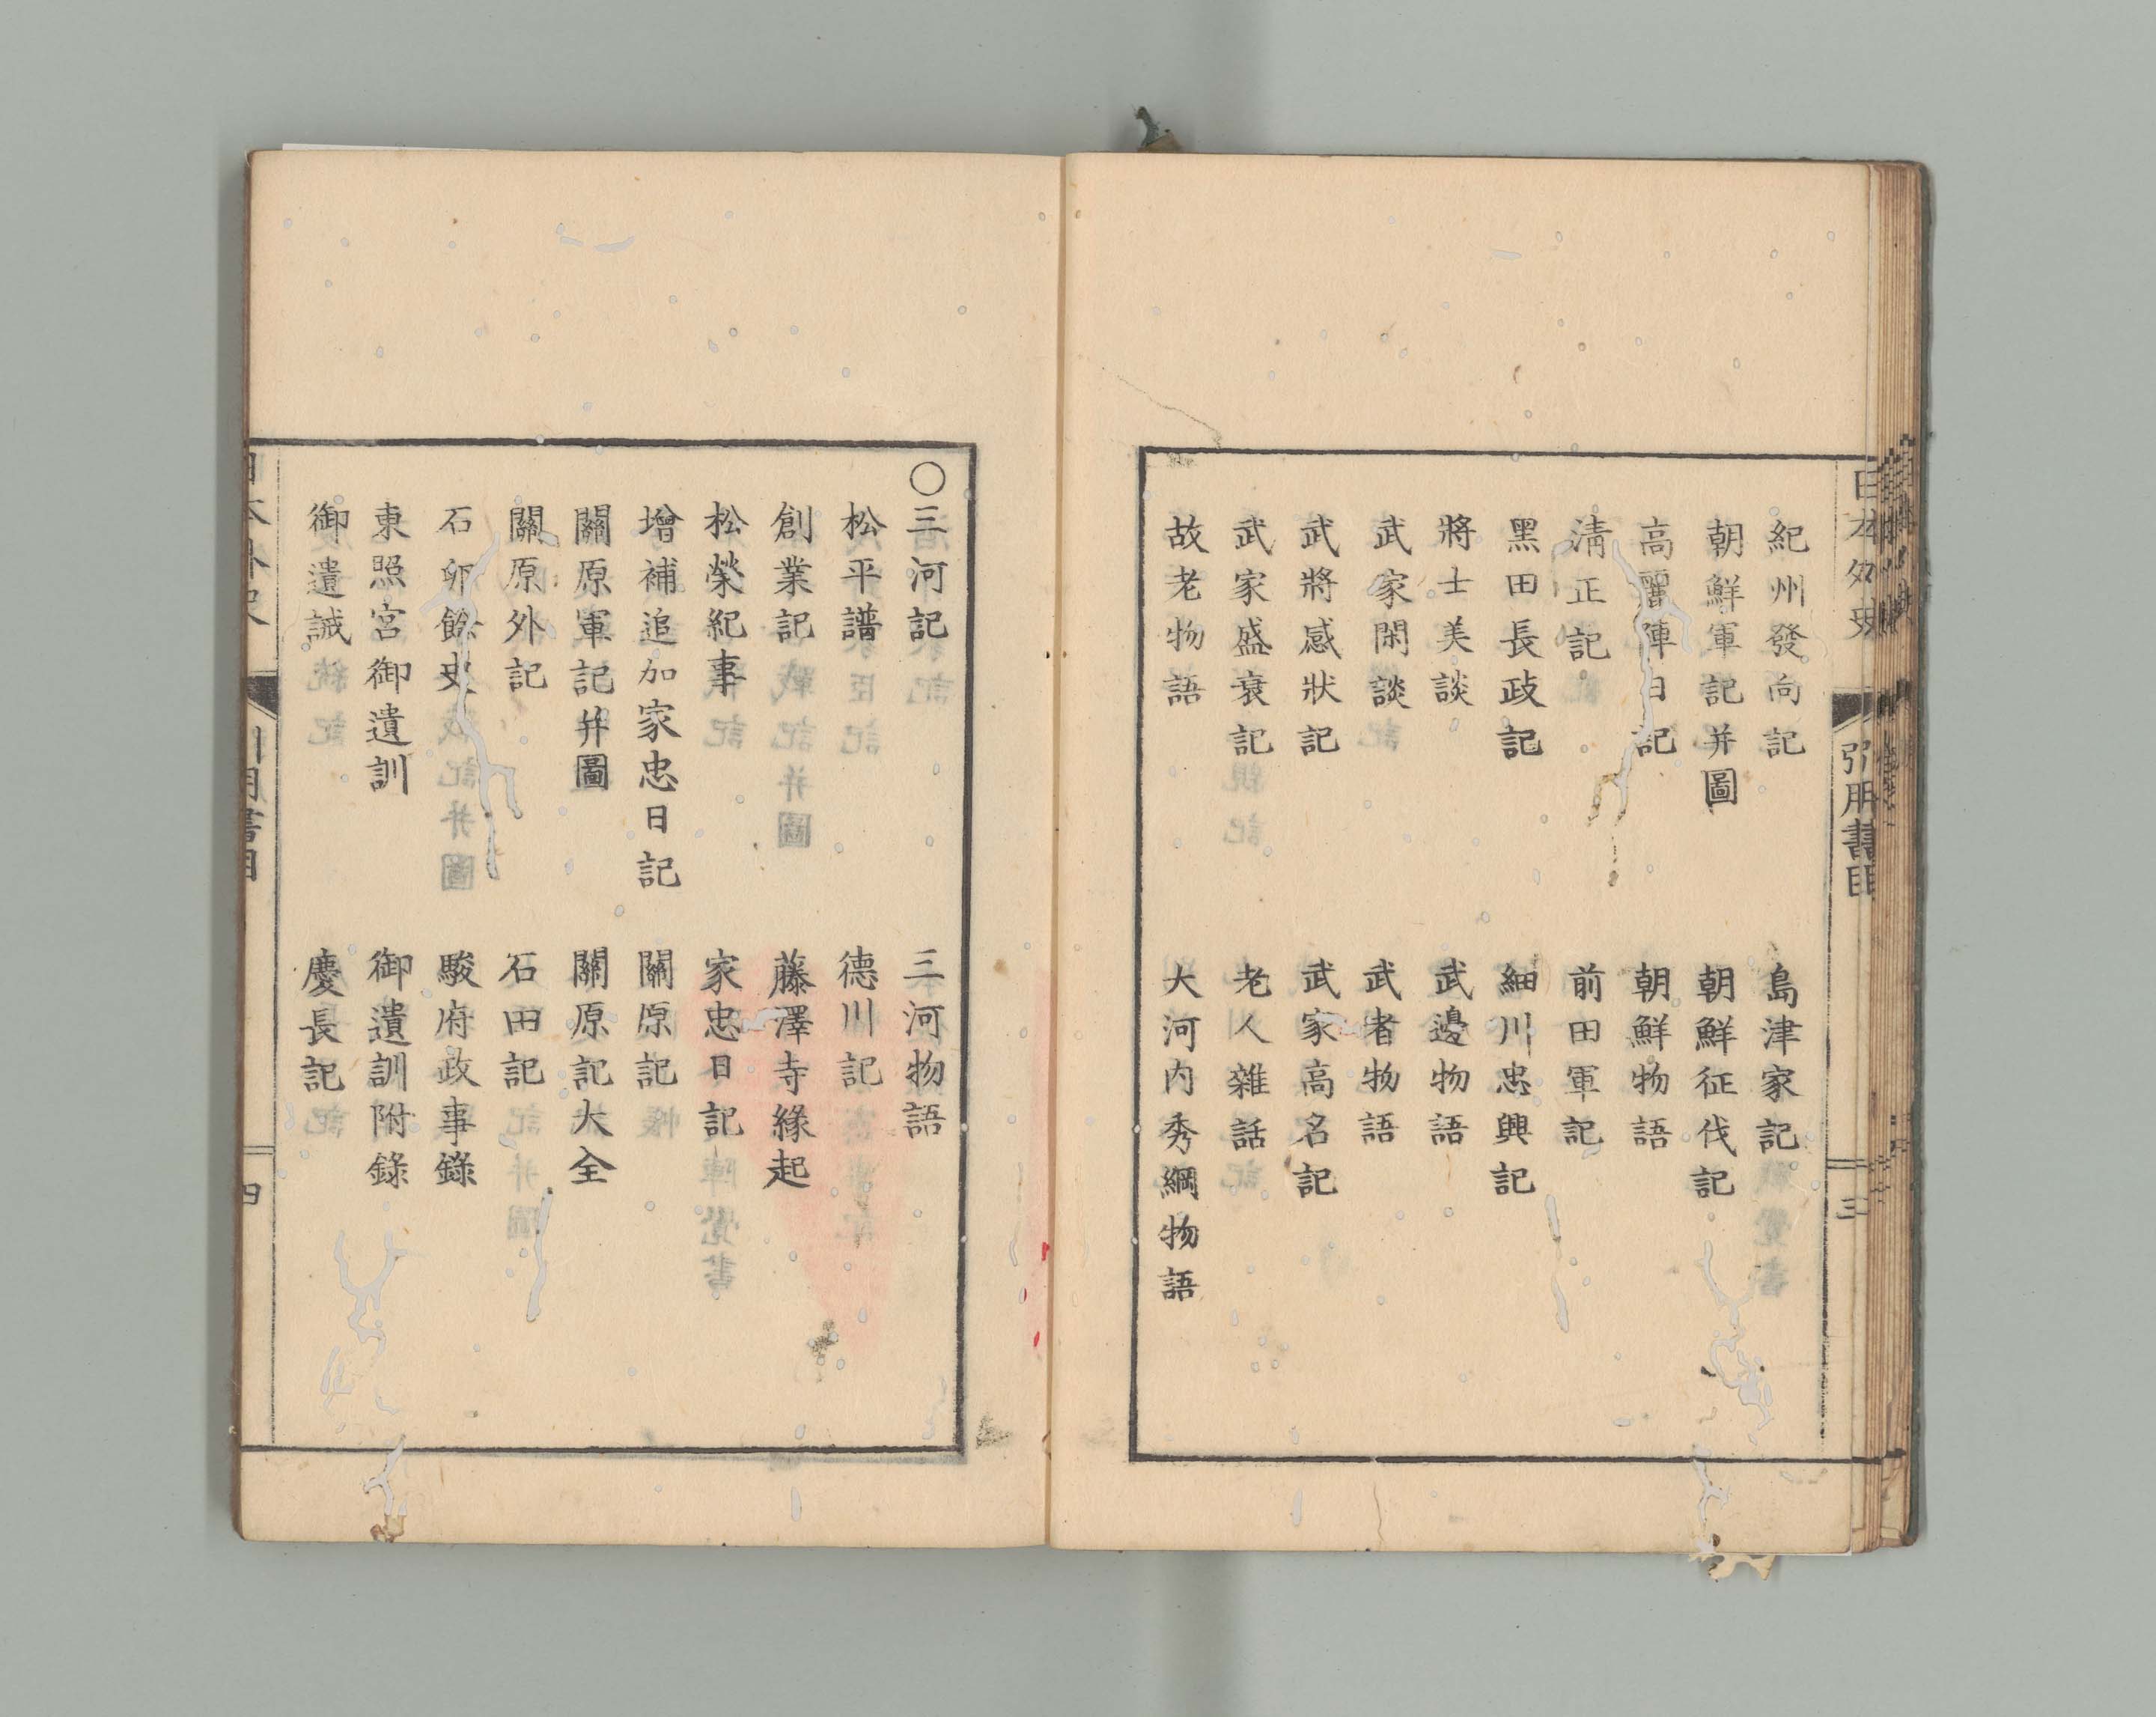 日本外史
引用書目
三
紀州發向記
島津家記
朝鮮軍記并圖
朝鮮征伐記
高麗陣日記
朝鮮物語
淸正記
前田軍記
黑田長政記
細川忠興記
將士美談
武邊物語
武家閑談
武者物語
武將感狀記
武家高名記
武家盛衰記
老人雜話
故老物語
大河内秀綱物語
〇三河記
三河物語
松平譜
德川記
創業記
藤澤寺緣起
松榮紀事
家忠日記
增補追加家忠日記
關原記
關原軍記并圖
關原記大全
關原外記
石田記
石卵餘史
駿府政事錄
東照宮御遺訓
御遺訓附錄
御遺誡
慶長記
日本外史
引用書目
四